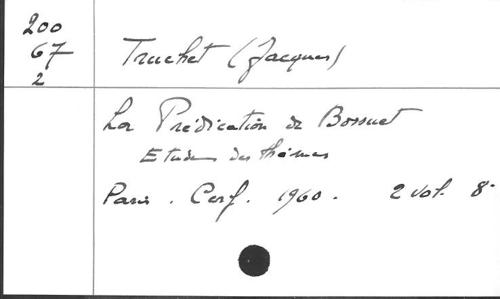 200
67
2
Truchet (Jacques)
La Prédication de Bossuet
Etude des thèmes
Paris. Cerf. 1960. 2 vol. 8°